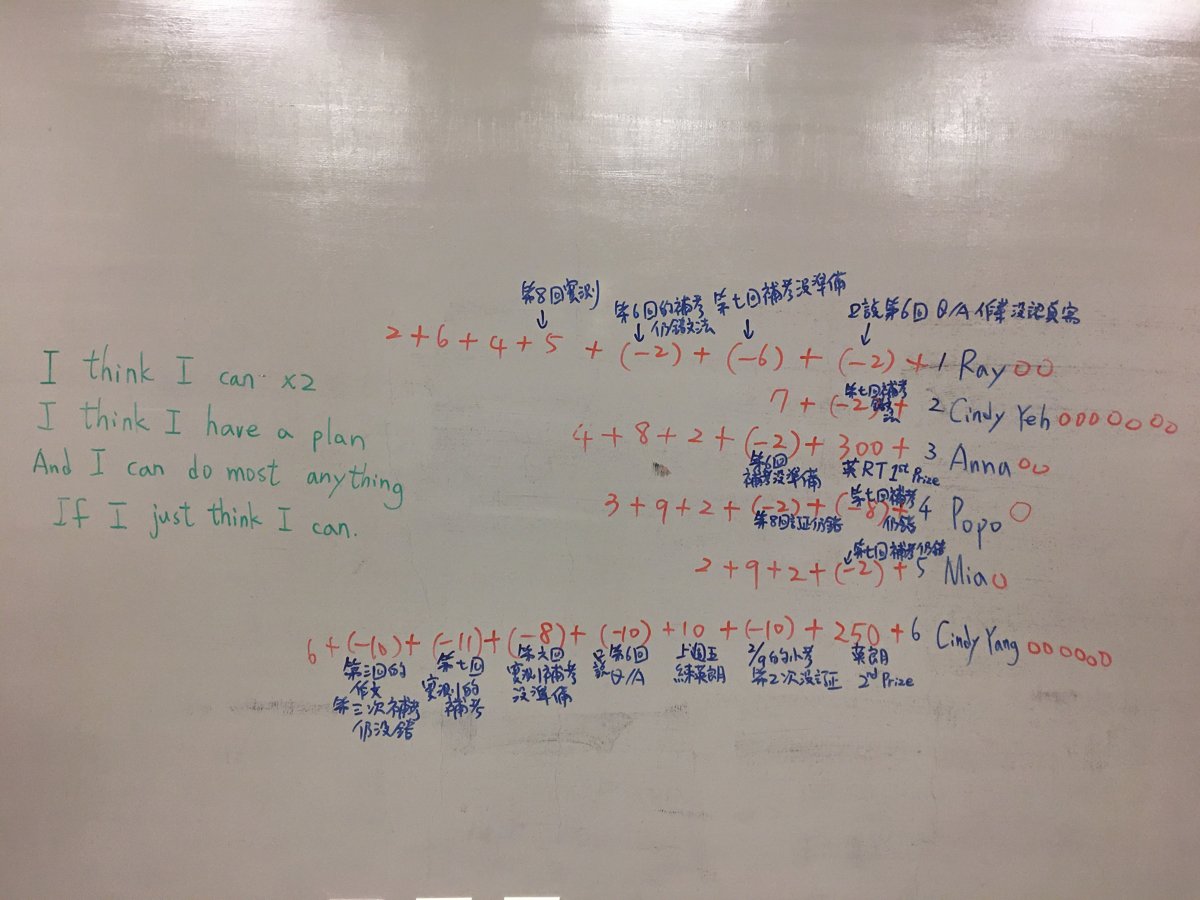 I think I can x2
I think I have a plan
And I can do most anything
If I just think I can.
第8回實測
第6回的補考
仍錯文法
第七回補考沒準備
只說第6回 Q/A 作業沒認真寫
2+6+4+5+(-2)+(-6)+(-2)+1 Ray OO
第七回補考
7+(-2)+2 Cindy Yeh OOOOOOO
4+8+2+(-2)+300+3 Anna OO
第6回
補考沒準備
英RT 1st Prize
第七回補考
仍錯
3+9+2+(-2)+(-8)+4 Popo O
第8回訂正仍錯
第七回補考仍錯
2+9+2+(-2)+5 Mia O
6+(-10)+(-11)+(-8)+(-10)+10+(-10)+250+6 Cindy Yang OOOOOO
第三回的
作文
第三次補考
仍沒錯
第七回
實測1的
補考
第六回
實測1補考
沒準備
只第6回
說Q/A
上週五
練英朗
2/9的小考
第2次沒訂正
英朗
2nd Prize